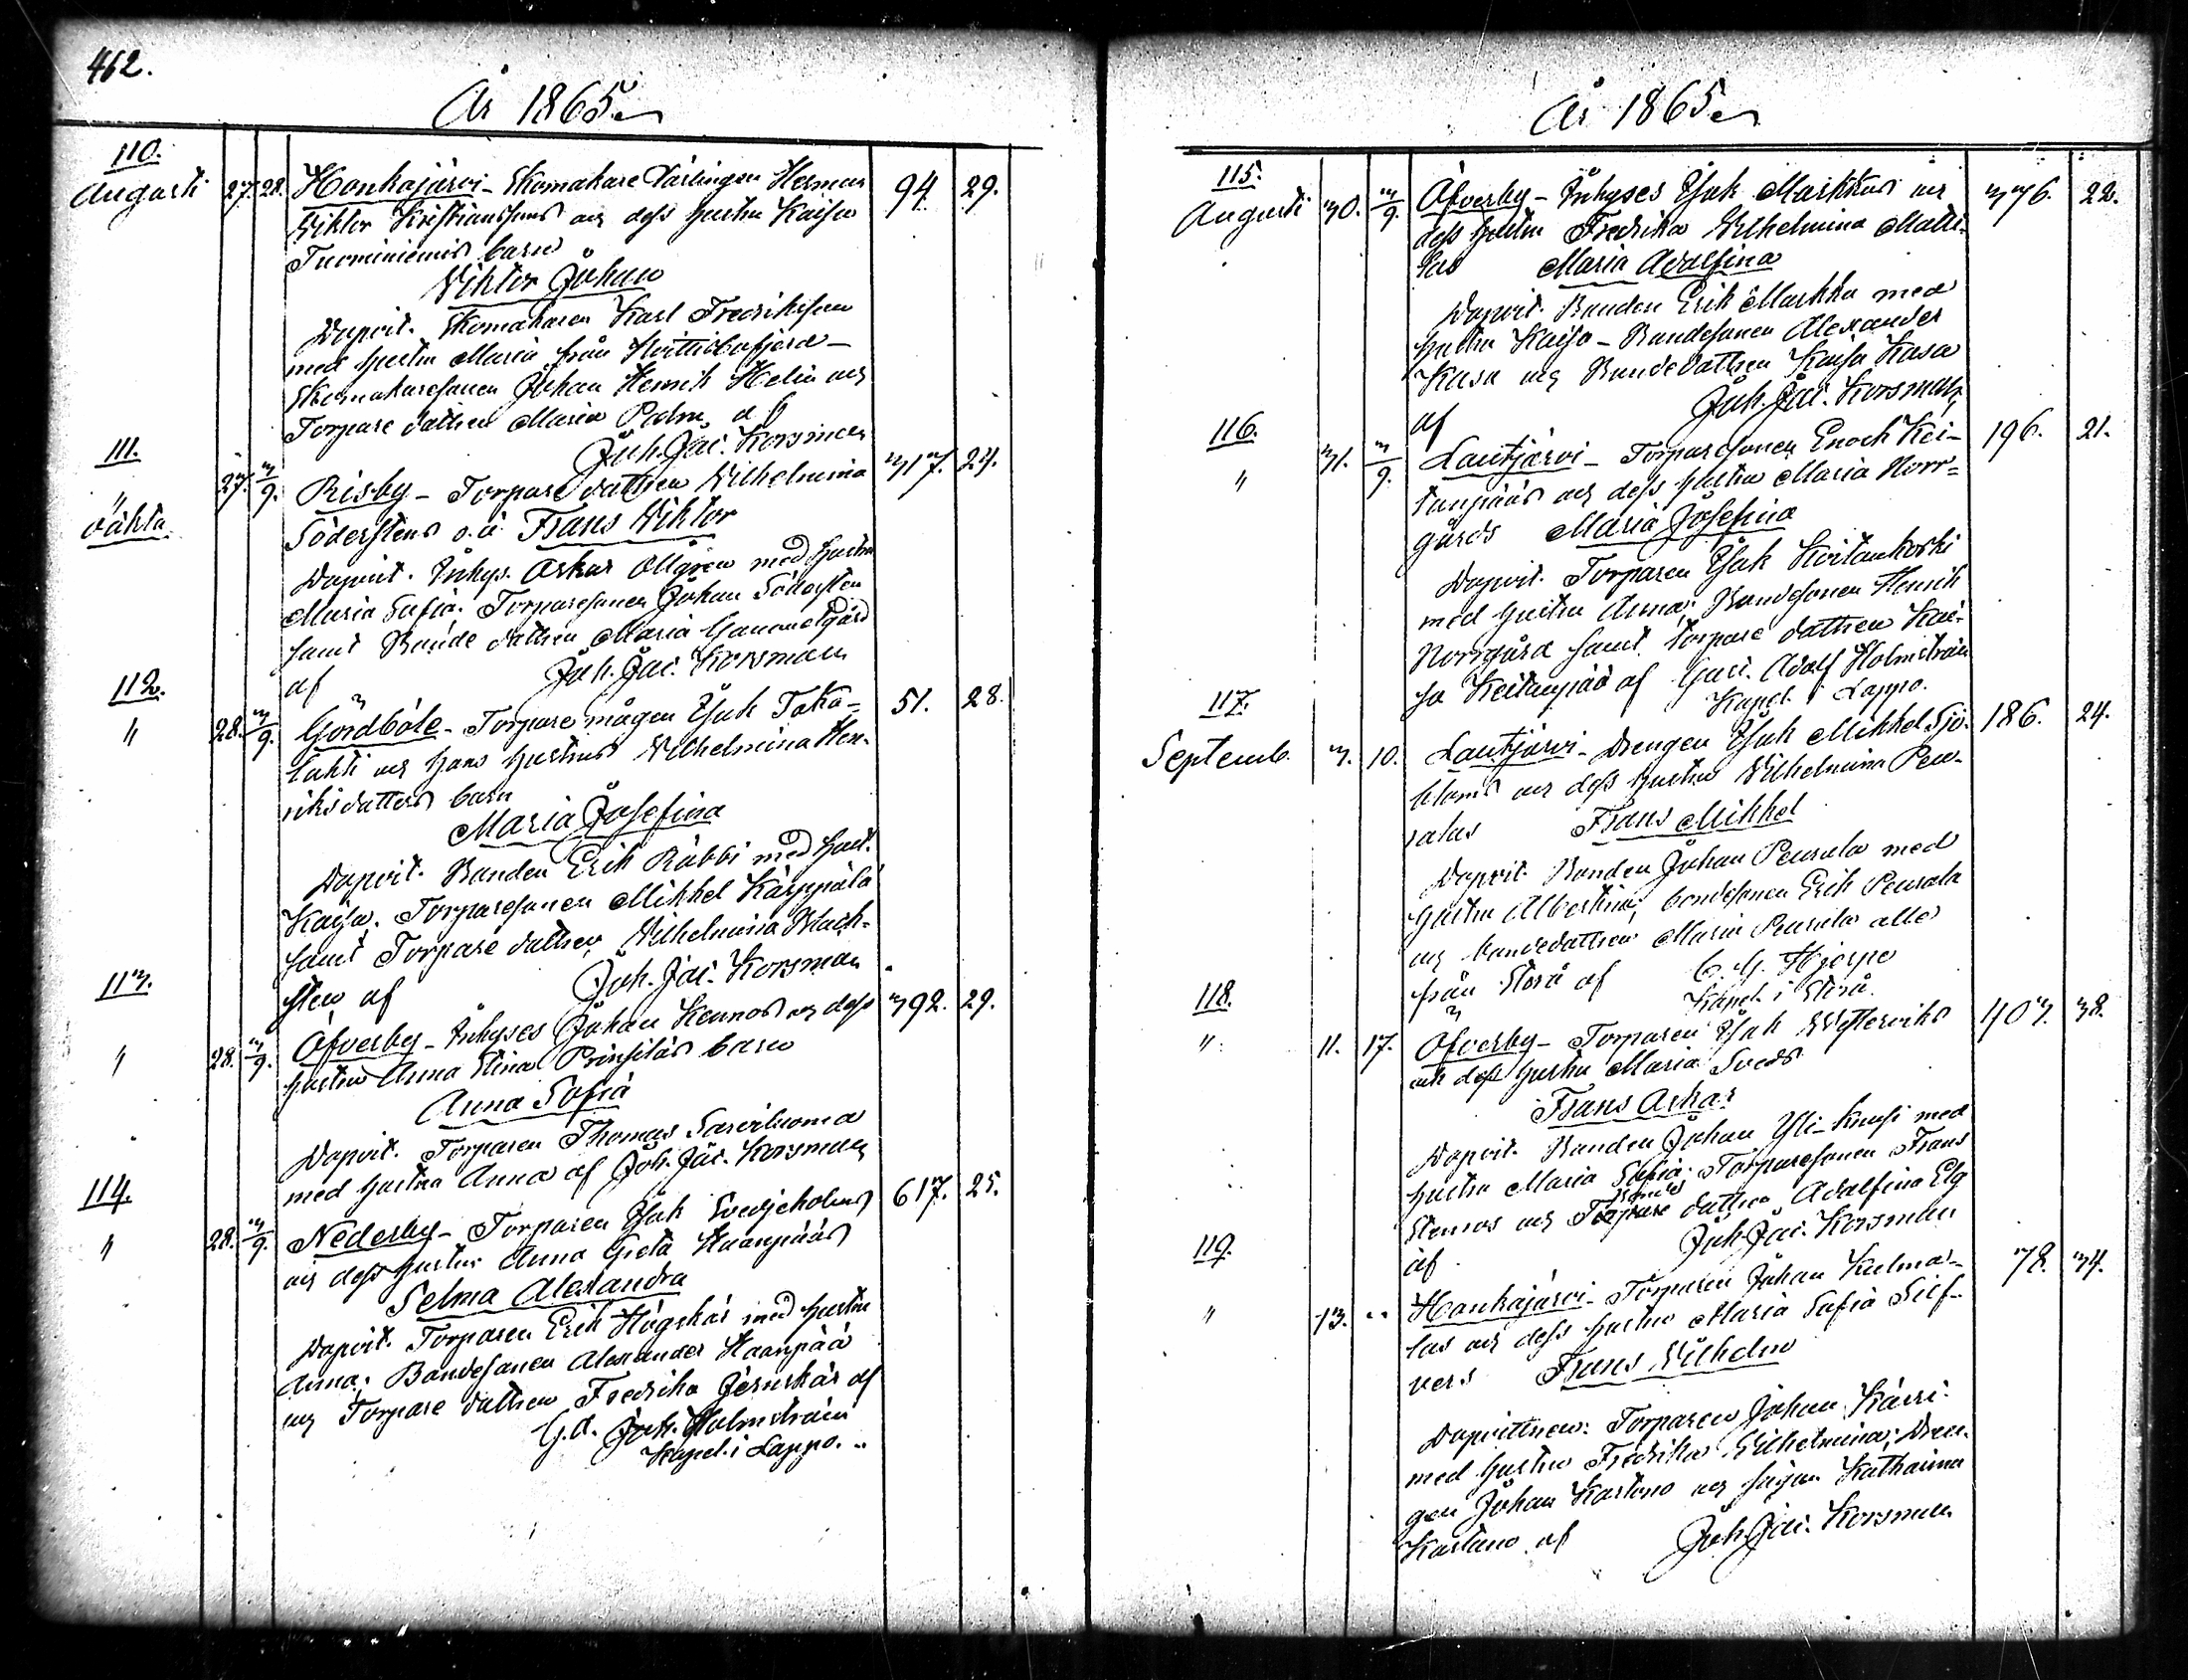 462.
År 1865.
110.
Augusti 27. 28. Honkajärvi - Skomakare Lärlingen Herman 94 29.
Viktor Kristianssons och dess hustru Kaisa
Tuominiemis barn
Viktor Johan
Dopvit. Skomakaren Karl Fredriksson
med hustru Maria från Hvittisbofjerd -
Skomakaresonen Johan Henrik Helin och
Torpare dattren Maria Palm, af
Joh. Jac. Korsman
111.
" 27. 3/9. Risby - Torpare dattren Wilhelmina 317. 24.
oäkta. Söderstens o.ä. Frans Viktor
Dopvit. Inhys. Oskar Allgren med hustru
Maria Sofia. Torparesonen Johan Södersten
samt Bonde dattren Maria Gammelgård
af Joh. Jac. Korsman
112.
" 28. 3/9. Gördböle - Torpare mågen Isak Taka- 51. 28.
lahti och hans hustrus Wilhelmina Hen-
riksdatters barn
Maria Josefina
Dopvit. Bonden Erik Räbbi med hust.
Kaisa. Torparesonen Mikkel Kärppälä
samt Torpare dattren Wilhelmina Back-
sten af Joh. Jac. Korsman
113.
" 28. 3/9. Öfverby - Inhyses Johan Kennos och dess 392. 29.
hustru Anna Stina Prinsiläs barn
Anna Sofia
Dopvit. Torparen Thomas Sarviluoma
med hustru Anna af Joh. Jac. Korsman
114.
" 28. 3/9. Nederby - Torparen Isak Svedjeholms 617. 25.
och dess hustru Anna Greta Haanpääs
Selma Alexandra
Dopvit. Torparen Erik Högskär med hustru
Anna; Bondesonen Alexander Haanpää
och Torpare dattren Fredrika Jernskär af
G. A. Holmström
Kapel. i Lappo.
År 1865
115.
Augusti 30. 3/9. Öfverby - Inhyses Isak Markkus och 376. 22.
dess hustru Fredrika Wilhelmina Matti-
las Maria Adolfina
Dopvit. Bonden Erik Markku med
hustru Kaisa - Bondesonen Alexander
Kasa och Bondedattren Kaisa Kasa
af Joh. Jac. Korsman
116.
" 31. 3/9. Lautjärvi - Torparesonen Enoch Kei- 196. 21.
tanpääs och dess hustru Maria Norr-
gårds Maria Josefina
Dopvit. Torparen Isak Koitankoski
med hustru Anna; Bondesonen Henrik
Norrgård samt torpare dattren Kai-
sa Keitanpää af Gust. Adolf Holmström
Kapel. i Lappo.
117.
Septemb. 3. 10. Lautjärvi - Drengen Isak Mikkel Sjö- 186. 24.
bloms och dess hustru Wilhelmina Peu-
ralas Frans Mikkel
Dopvit. Bonden Johan Peurala med
hustru Albertina; bondesonen Erik Peurala
och bondedattren Maria Peurala alla
från Storå af C. G. Hjerpe
Kapel. i Storå.
118.
" 11. 17. Öfverby - Torparen Isak Westerviks 403. 38.
och dess hustru Maria Sveds
Frans Oskar
Dopvit. Bonden Johan Yli-Knusi med
hustru Maria Sofia; Torparesonen Frans
Stenros och Torpare dattren Adolfina Elg
af Joh. Jac. Korsman
119.
" 13. " Honkajärvi - Torparen Johan Kulma- 78. 34.
las och dess hustru Maria Sofia Silf-
vers Frans Wilhelm
Dopvittnen: Torparen Johan Kärri
med hustru Fredrika Wilhelmina; Dren-
gen Johan Kastano och pigan Katharina
Kastano af Joh. Jac. Korsman